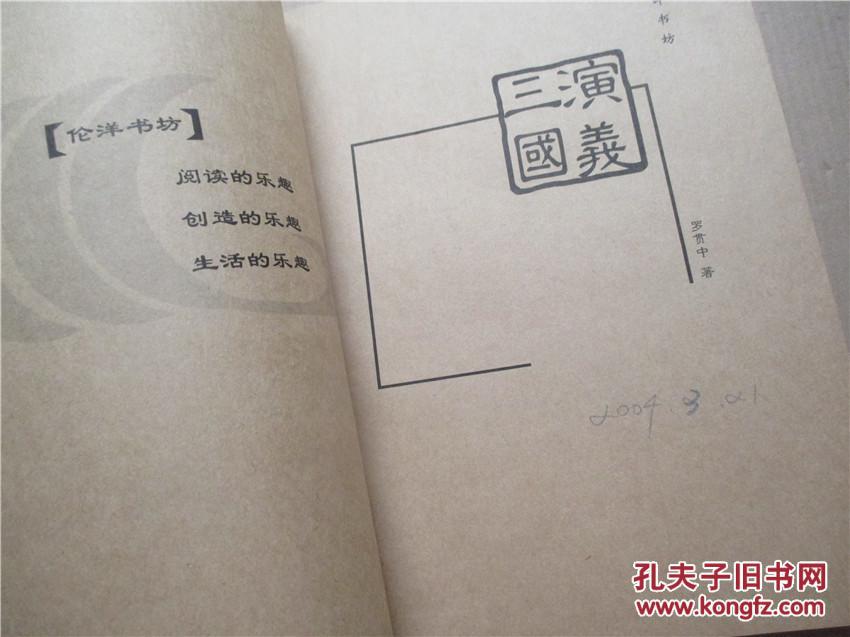 【伦洋书坊】
阅读的乐趣
创造的乐趣
生活的乐趣
书坊
三國演義
罗贯中 著
2004.3.21
孔夫子旧书网
www.kongfz.com